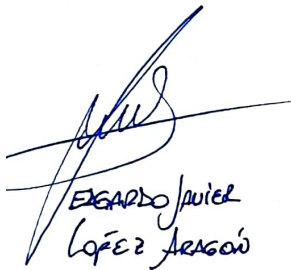 EDGARDO JAVIER
LOPÉZ ARAGÓN